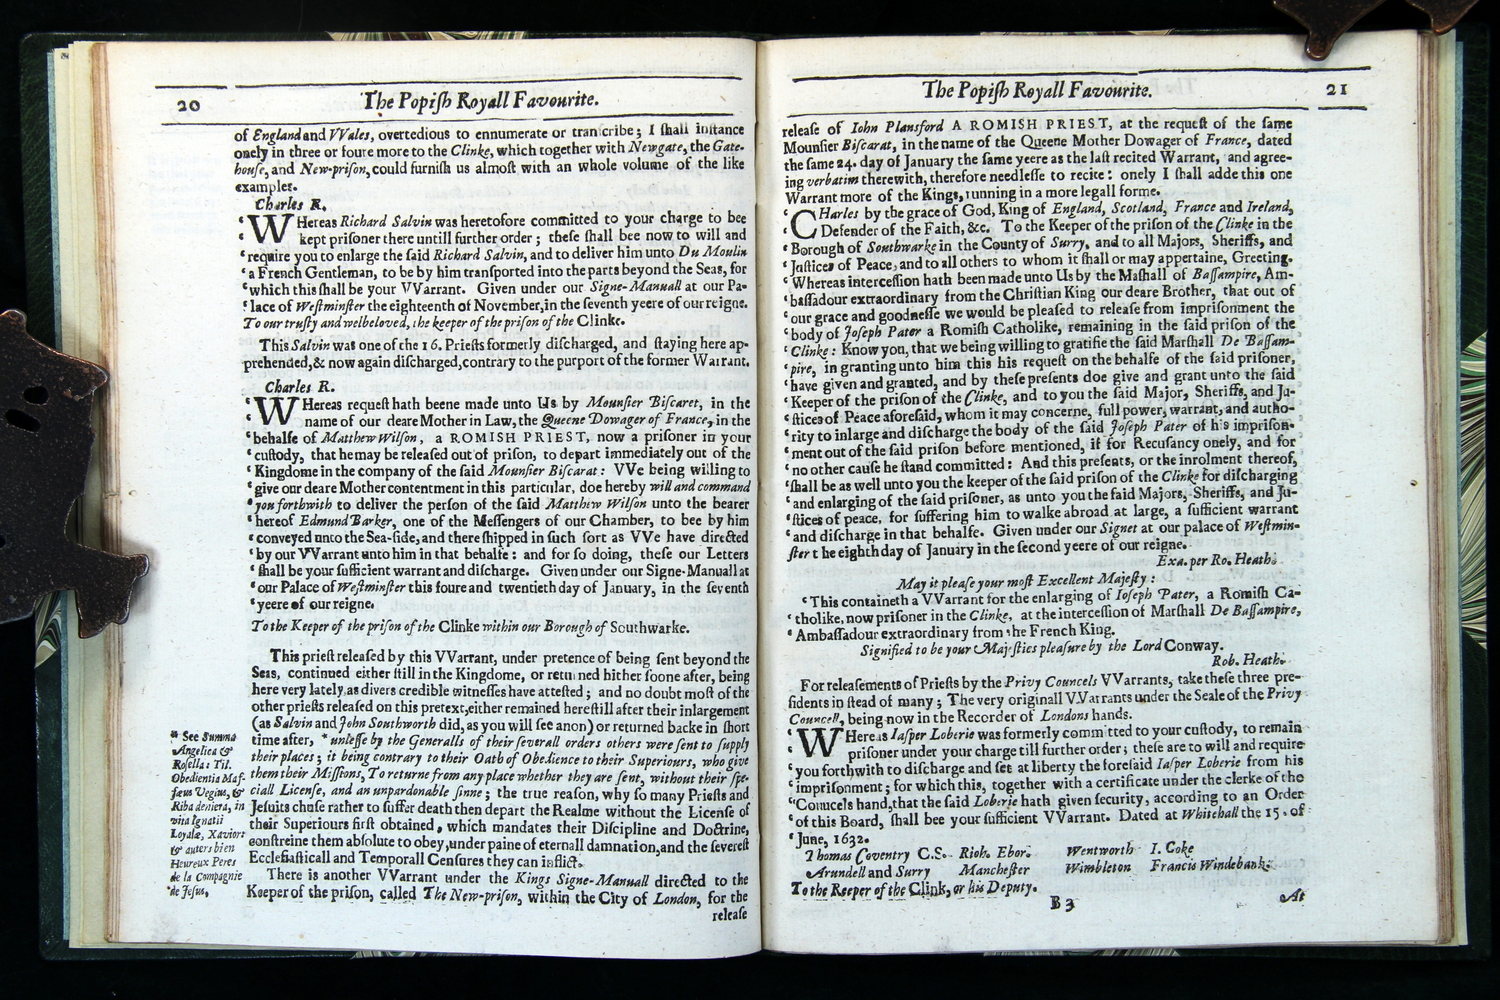 20
The Popiſh Royall Favourite.
of England and VVales, overtedious to ennumerate or tranſcribe; I ſhall inſtance
onely in three or foure more to the Clinke, which together with Newgate, the Gate-
houſe, and New-priſon, could furniſh us almoſt with an whole volume of the like
examples.
Charles R.
‘WHereas Richard Salvin was heretofore committed to your charge to bee
‘kept priſoner there untill further order; theſe ſhall bee now to will and
‘require you to enlarge the ſaid Richard Salvin, and to deliver him unto Du Moulin
‘a French Gentleman, to be by him tranſported into the parts beyond the Seas, for
‘which this ſhall be your VVarrant. Given under our Signe-Manuall at our Pa-
‘lace of Weſtminſter the eighteenth of November, in the ſeventh yeere of our reigne.
To our truſty and welbeloved, the keeper of the priſon of the Clinke.
This Salvin was one of the 16. Prieſts formerly diſcharged, and ſtaying here ap-
prehended, & now again diſcharged, contrary to the purport of the former Warrant.
Charles R.
‘WHereas requeſt hath beene made unto Us by Mounſier Biſcaret, in the
‘name of our deare Mother in Law, the Queene Dowager of France, in the
‘behalfe of Matthew Wilſon, a ROMISH PRIEST, now a priſoner in your
‘cuſtody, that he may be releaſed out of priſon, to depart immediately out of the
‘Kingdome in the company of the ſaid Mounſier Biſcarat: VVe being willing to
‘give our deare Mother contentment in this particular, doe hereby will and command
‘you forthwith to deliver the perſon of the ſaid Matthew Wilſon unto the bearer
‘hereof Edmund Barker, one of the Meſſengers of our Chamber, to bee by him
‘conveyed unto the Sea-ſide, and there ſhipped in ſuch ſort as VVe have directed
‘by our VVarrant unto him in that behalfe: and for ſo doing, theſe our Letters
‘ſhall be your ſufficient warrant and diſcharge. Given under our Signe-Manuall at
‘our Palace of Weſtminſter this foure and twentieth day of January, in the ſeventh
‘yeere of our reigne.
To the Keeper of the priſon of the Clinke within our Borough of Southwarke.
This prieſt releaſed by this VVarrant, under pretence of being ſent beyond the
Seas, continued either ſtill in the Kingdome, or returned hither ſoone after, being
here very lately, as divers credible witneſſes have atteſted; and no doubt moſt of the
other prieſts releaſed on this pretext, either remained here ſtill after their inlargement
(as Salvin and John Southworth did, as you will ſee anon) or returned backe in ſhort
time after, * unleſſe by the Generalls of their ſeverall orders others were ſent to ſupply
their places; it being contrary to their Oath of Obedience to their Superiours, who give
them their Miſſions, To returne from any place whether they are ſent, without their ſpe-
ciall Licenſe, and an unpardonable ſinne; the true reaſon, why ſo many Prieſts and
Jeſuits chuſe rather to ſuffer death then depart the Realme without the Licenſe of
their Superiours firſt obtained, which mandates their Diſcipline and Doctrine,
conſtreine them abſolute to obey, under paine of eternall damnation, and the ſevereſt
Eccleſiaſticall and Temporall Cenſures they can inflict.
There is another VVarrant under the Kings Signe-Manuall directed to the
Keeper of the priſon, called The New-priſon, within the City of London, for the
releaſe
* See Summa
Angelica &
Roſella: Tit.
Obedientia Maf-
fæus Vegius, &
Riba deniera, in
vita Ignatii
Loyalæ, Xavior:
& auters bien
Heureux Peres
de la Compagnie
de Jeſus,
The Popiſh Royall Favourite.
21
releaſe of Iohn Plansford A ROMISH PRIEST, at the requeſt of the ſame
Mounſier Biſcarat, in the name of the Queene Mother Dowager of France, dated
the ſame 24. day of January the ſame yeere as the laſt recited Warrant, and agree-
ing verbatim therewith, therefore needleſſe to recite: onely I ſhall adde this one
Warrant more of the Kings, running in a more legall forme.
‘CHarles by the grace of God, King of England, Scotland, France and Ireland,
‘Defender of the Faith, &c. To the Keeper of the priſon of the Clinke in the
‘Borough of Southwarke in the County of Surry, and to all Majors, Sheriffs, and
‘Juſtices of Peace, and to all others to whom it ſhall or may appertaine, Greeting.
‘Whereas interceſſion hath been made unto Us by the Maſhall of Baſſampire, Am-
‘baſſadour extraordinary from the Chriſtian King our deare Brother, that out of
‘our grace and goodneſſe we would be pleaſed to releaſe from impriſonment the
‘body of Joſeph Pater a Romiſh Catholike, remaining in the ſaid priſon of the
‘Clinke: Know you, that we being willing to gratifie the ſaid Marſhall De Baſſam-
‘pire, in granting unto him this his requeſt on the behalfe of the ſaid priſoner,
‘have given and granted, and by theſe preſents doe give and grant unto the ſaid
‘Keeper of the priſon of the Clinke, and to you the ſaid Major, Sheriffs, and Ju-
‘ſtices of Peace aforeſaid, whom it may concerne, full power, warrant, and autho-
‘rity to inlarge and diſcharge the body of the ſaid Joſeph Pater of his impriſon-
‘ment out of the ſaid priſon before mentioned, if for Recuſancy onely, and for
‘no other cauſe he ſtand committed: And this preſents, or the inrolment thereof,
‘ſhall be as well unto you the keeper of the ſaid priſon of the Clinke for diſcharging
‘and enlarging of the ſaid priſoner, as unto you the ſaid Majors, Sheriffs, and Ju-
‘ſtices of peace, for ſuffering him to walke abroad at large, a ſufficient warrant
‘and diſcharge in that behalfe. Given under our Signet at our palace of Weſtmin-
ſter the eighth day of January in the ſecond yeere of our reigne.
Exa. per Ro. Heath.
May it pleaſe your moſt Excellent Majeſty:
‘This containeth a VVarrant for the enlarging of Ioſeph Pater, a Romiſh Ca-
‘tholike, now priſoner in the Clinke, at the interceſſion of Marſhall De Baſſampire,
‘Ambaſſadour extraordinary from the French King.
Signified to be your Majeſties pleaſure by the Lord Conway.
Rob. Heath.
For releaſements of Prieſts by the Privy Councels VVarrants, take theſe three pre-
ſidents in ſtead of many; The very originall VVarrants under the Seale of the Privy
Councell, being now in the Recorder of Londons hands.
‘WHereas Iaſper Loberie was formerly committed to your cuſtody, to remain
‘priſoner under your charge till further order; theſe are to will and require
‘you forthwith to diſcharge and ſet at liberty the foreſaid Iaſper Loberie from his
‘impriſonment; for which this, together with a certificate under the clerke of the
“Councels hand, that the ſaid Loberie hath given ſecurity, according to an Order
‘of this Board, ſhall bee your ſufficient VVarrant. Dated at Whitehall the 15. of
‘June, 1632.
Thomas Coventry C.S. Rich. Ebor. Wentworth I. Coke
Arundell and Surry Mancheſter Wimbleton Francis Windebank.
To the Keeper of the Clink, or his Deputy.
B 3
At